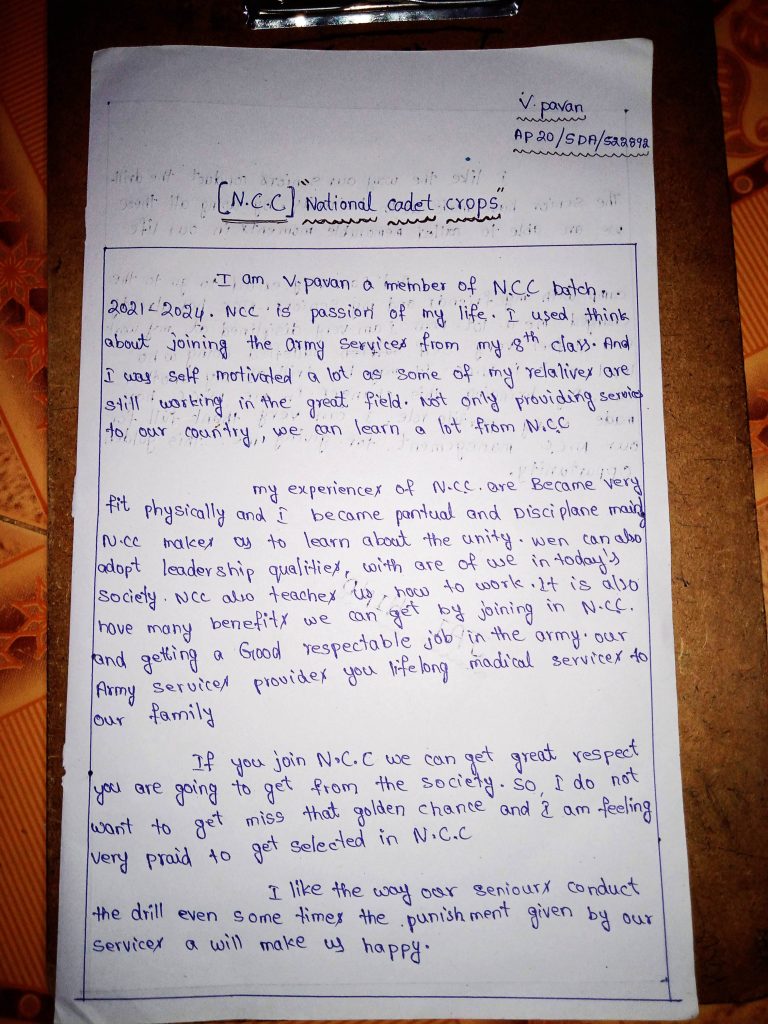 V. pavan
AP20/SDA/522892
[N.C.C] "National cadet crops"
I am, V. pavan a member of N.C.C batch.
2021-2024. NCC is passion of my life. I used think
about joining the army services from my 8th class. And
I was self motivated a lot as some of my relatives are
still working in the great field. not only providing services
to our country, we can learn a lot from N.C.C
my experiences of N.CC. are Became very
fit physically and I became pantual and Disciplane main
N.CC makes us to learn about the unity. wen can also
adopt leadership qualities, with are of use in today's
society. NCC also teaches us, how to work. It is also
have many benefits we can get by joining in N.CC.
and getting a Good respectable job in the army. our
Army services provides you lifelong madical services to
our family
If you join N.C.C we can get great respect
you are going to get from the society. so, I do not
want to get miss that golden chance and I am feeling
very praid to get selected in N.C.C
I like the way our seniours conduct
the drill even some times the punishment given by our
services a will make us happy.